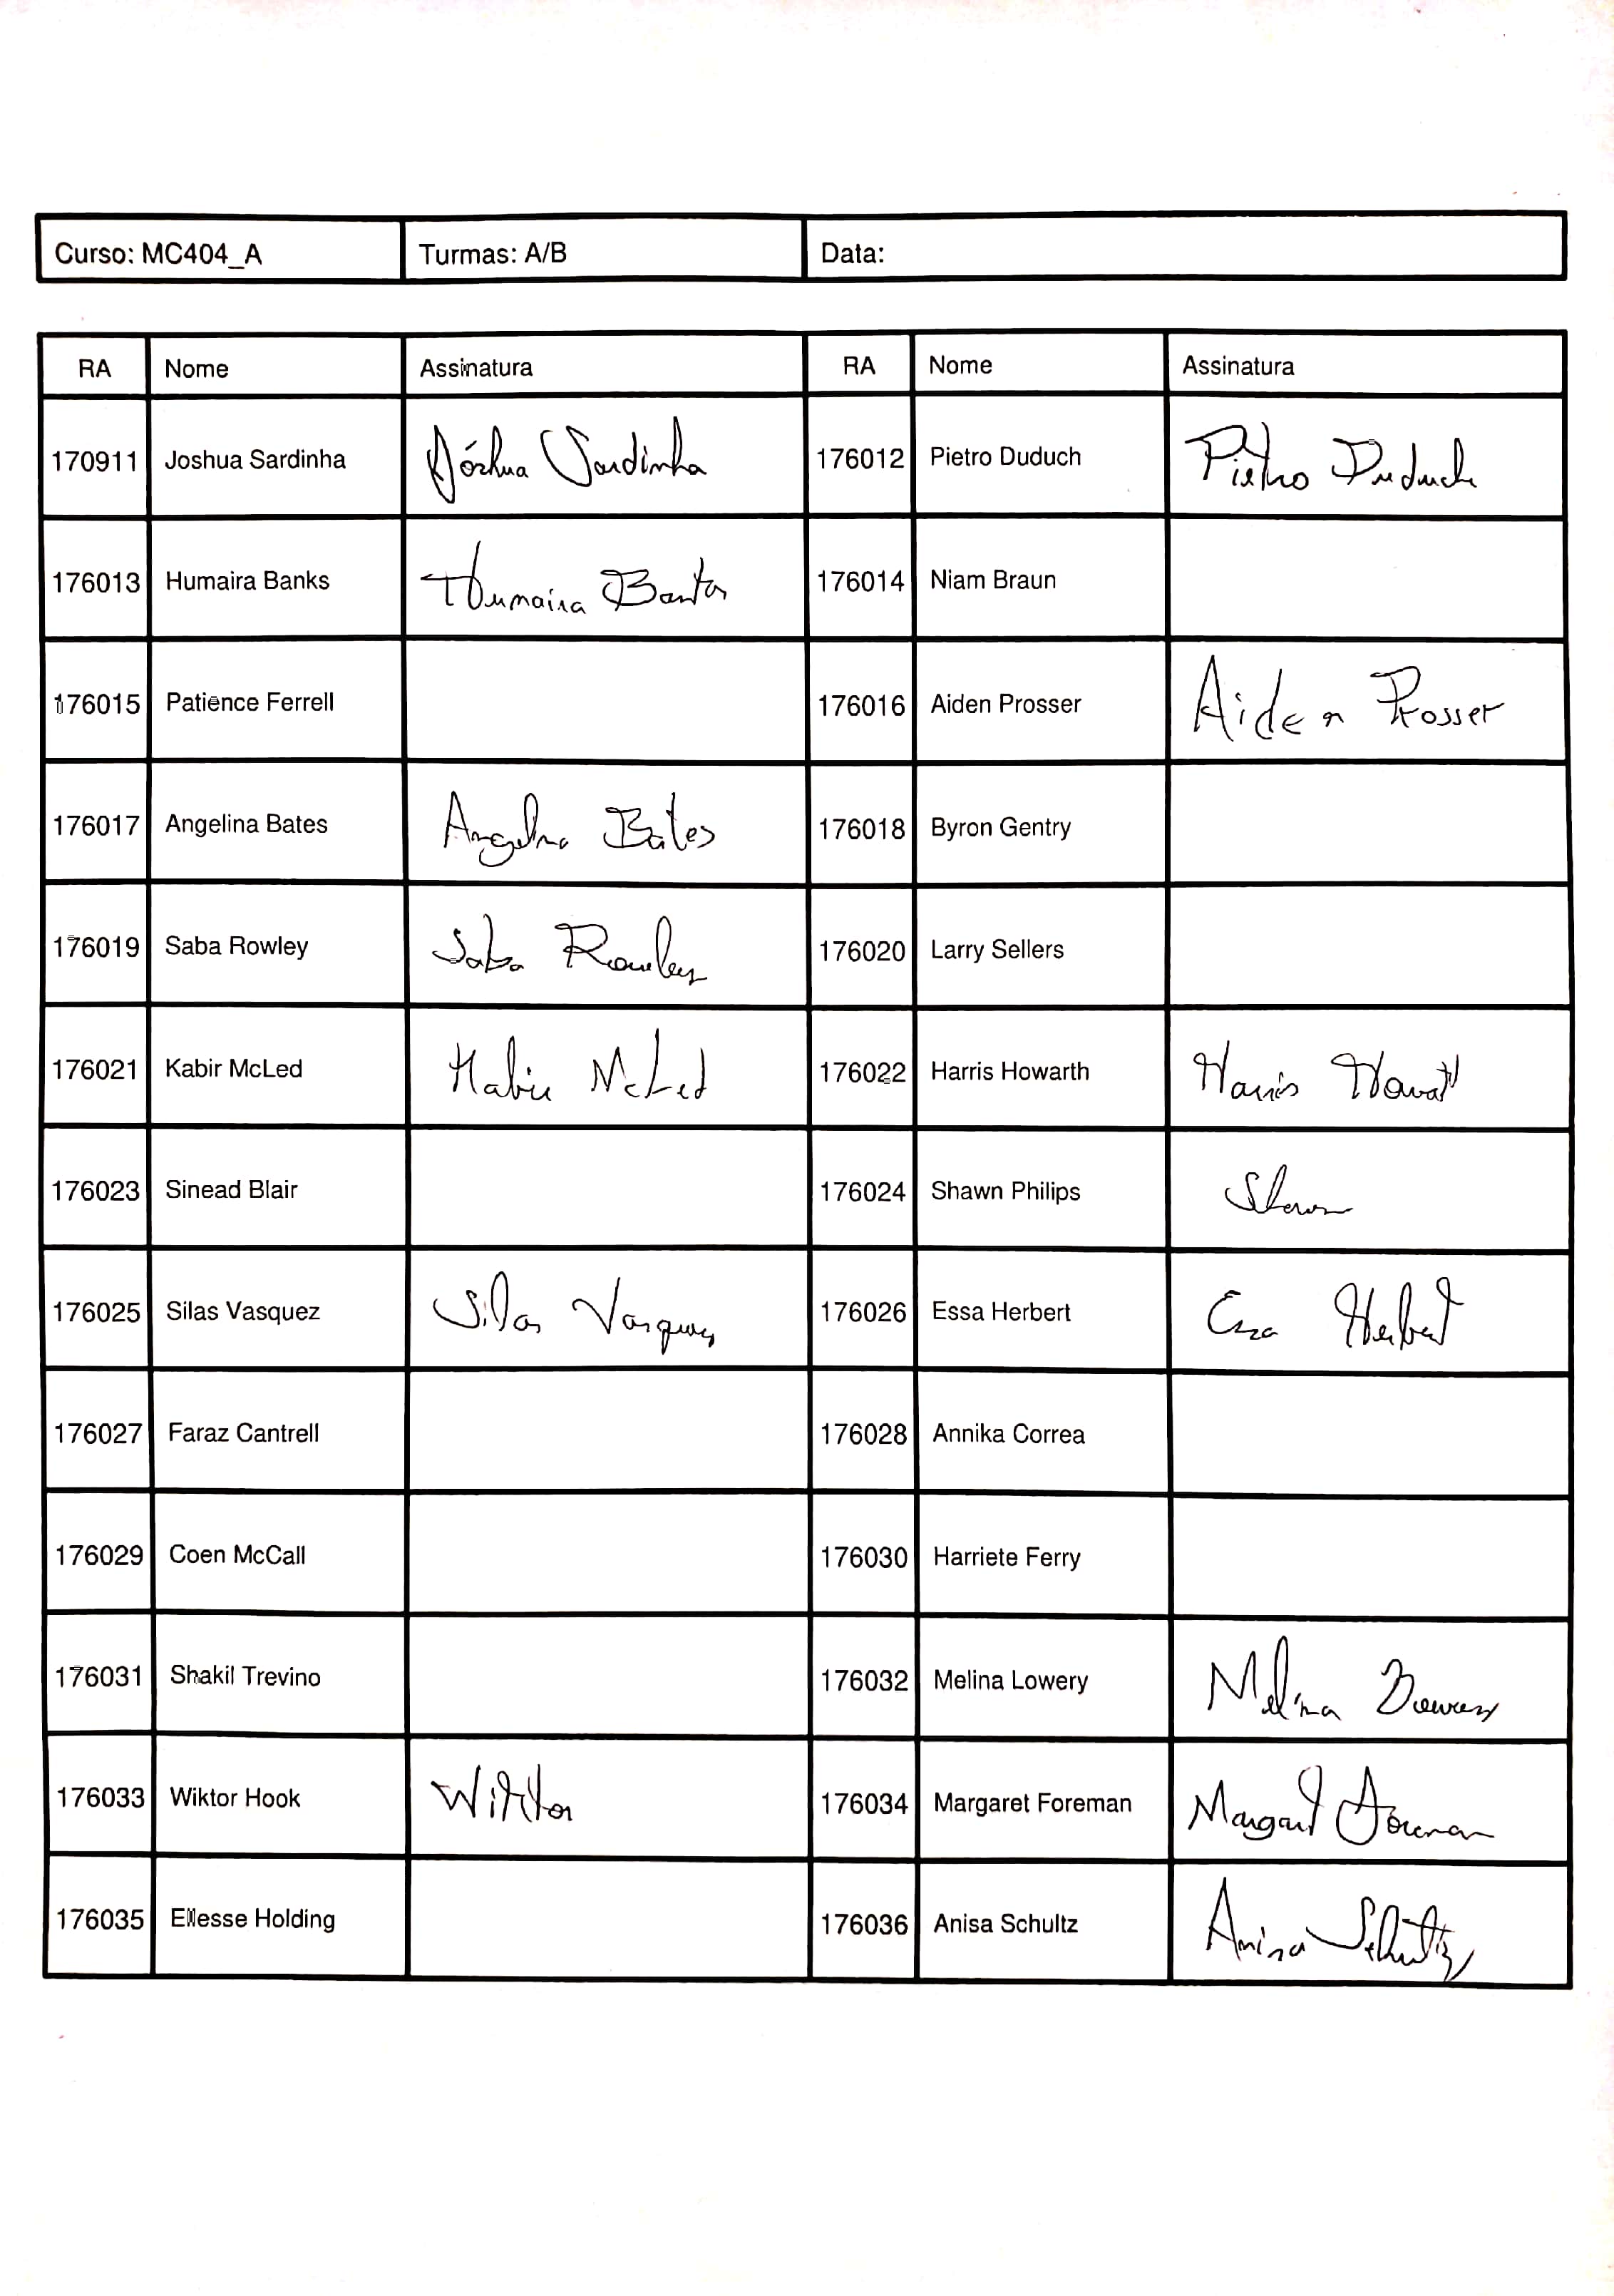 Curso: MC404_A Turmas: A/B Data:
RA Nome Assinatura RA Nome Assinatura
170911 Joshua Sardinha Jóshua Sardinha 176012 Pietro Duduch Pietro Duduch
176013 Humaira Banks Humaira Banks 176014 Niam Braun
176015 Patience Ferrell 176016 Aiden Prosser Aiden Prosser
176017 Angelina Bates Angelina Bates 176018 Byron Gentry
176019 Saba Rowley Saba Rowley 176020 Larry Sellers
176021 Kabir McLed Kabir McLed 176022 Harris Howarth Harris Howarth
176023 Sinead Blair 176024 Shawn Philips Shawn
176025 Silas Vasquez Silas Vasquez 176026 Essa Herbert Essa Herbert
176027 Faraz Cantrell 176028 Annika Correa
176029 Coen McCall 176030 Harriete Ferry
176031 Shakil Trevino 176032 Melina Lowery Melina
176033 Wiktor Hook Wiktor 176034 Margaret Foreman Margaret Foreman
176035 Ellesse Holding 176036 Anisa Schultz Anisa Schultz